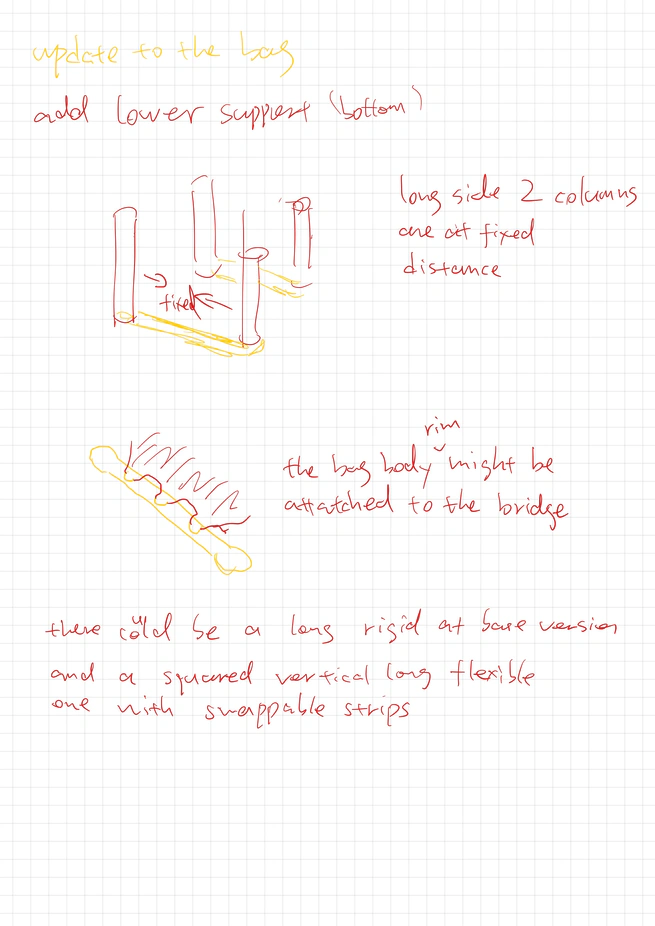 update to the bag
add lower support (bottom)
long side 2 columns
are at fixed
distance
fixed
rim
the bag body might be
attatched to the bridge
there could be a long rigid at base version
and a squared vertical long flexible
one with swappable strips